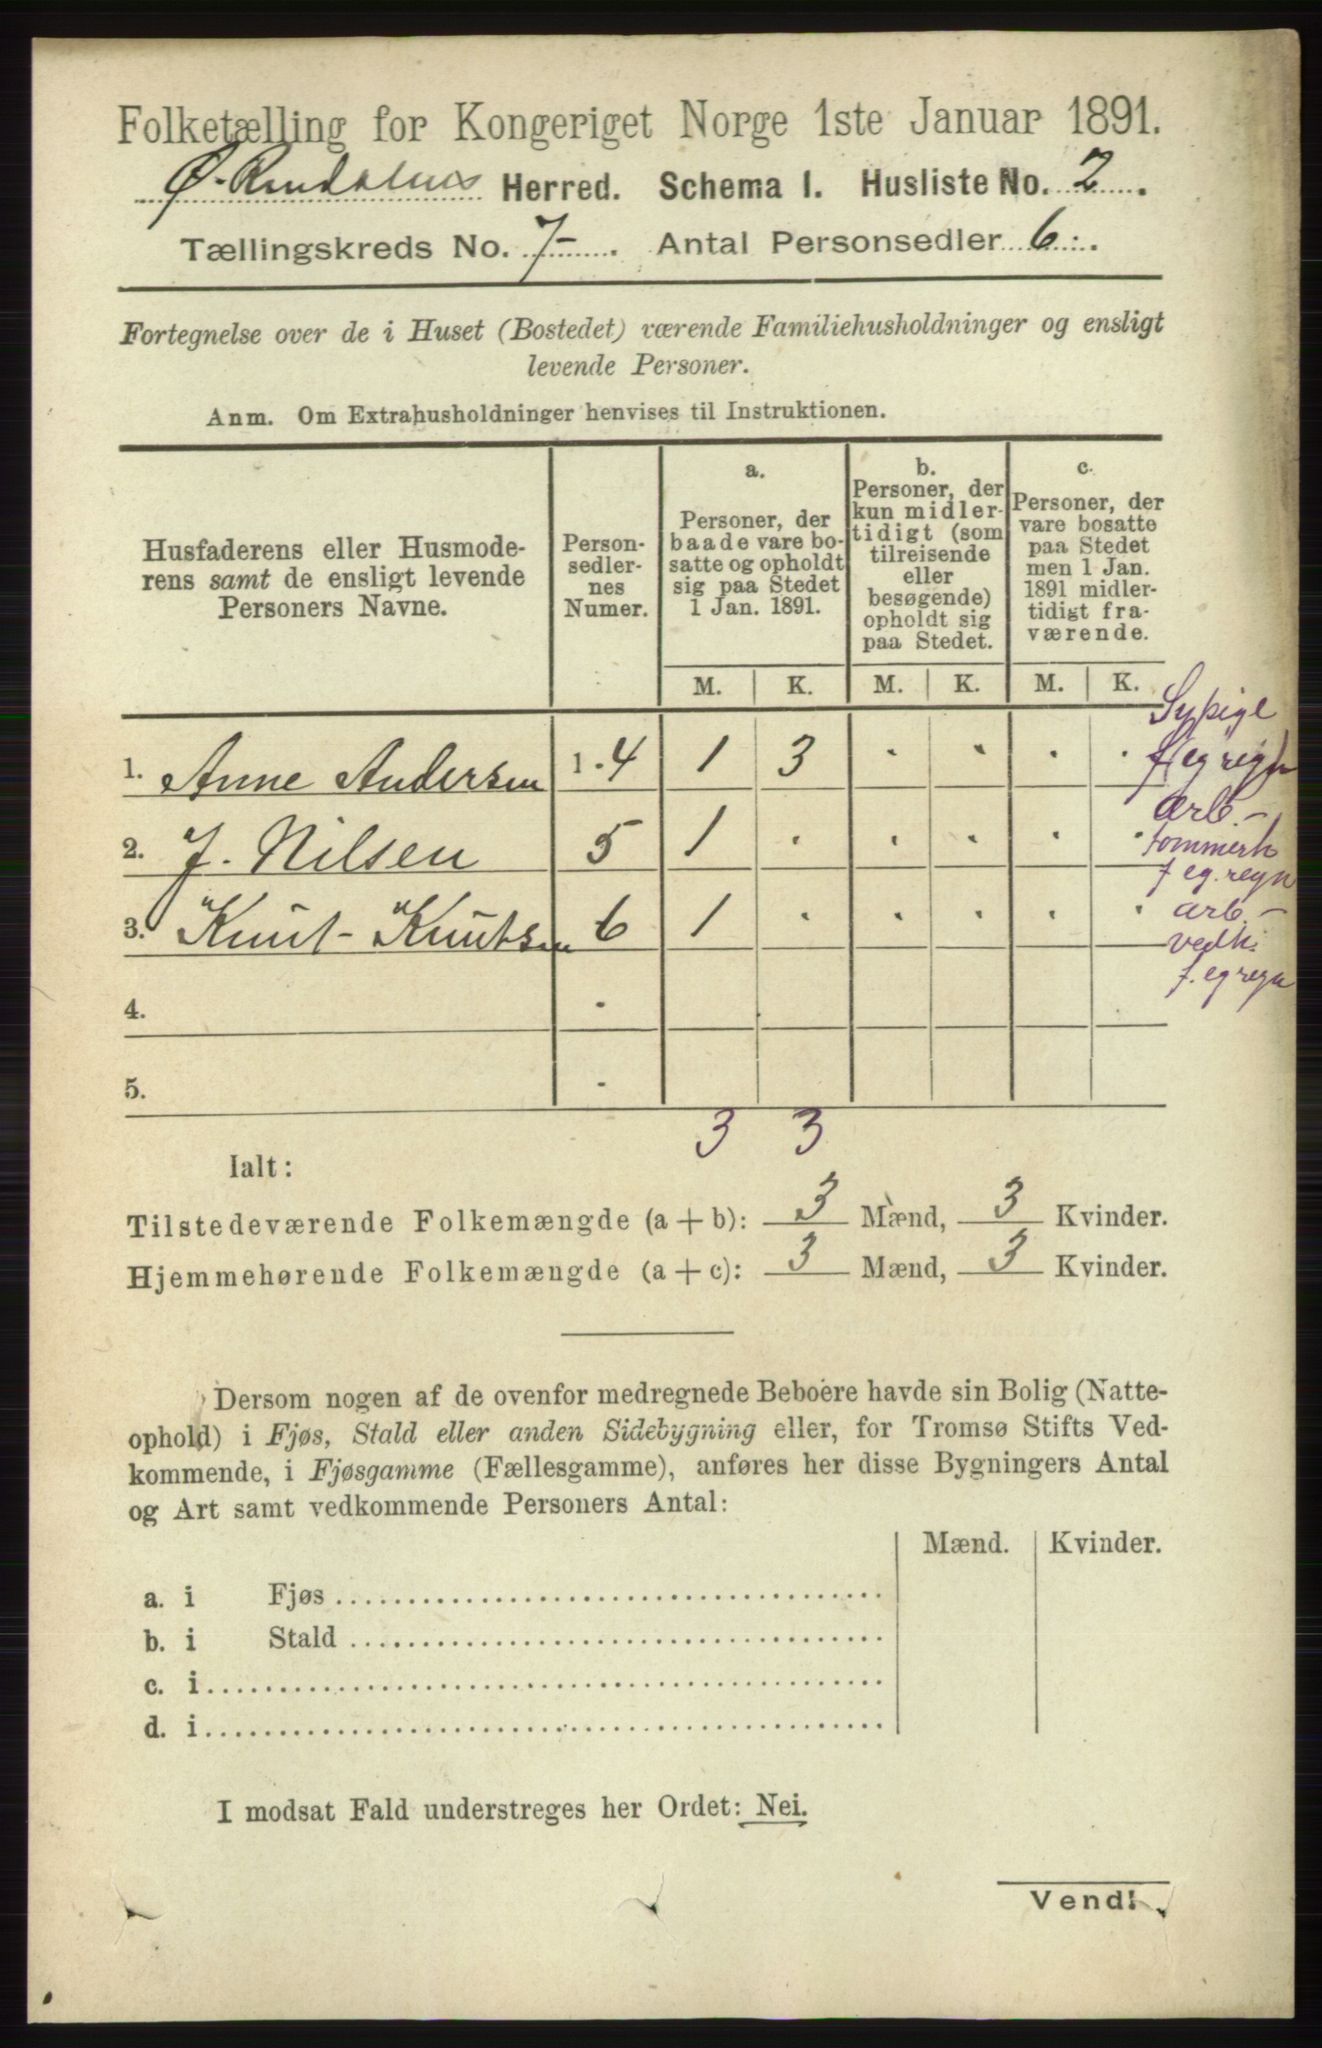 Folketælling for Kongeriget Norge 1ste Januar 1891.
Ø. Rendalens Herred. Schema 1. Husliste No. 2.
Tællingskreds No. 7. Antal Personsedler 6.
Fortegnelse over de i Huset (Bostedet) værende Familiehusholdninger og ensligt
levende Personer.
Anm. Om Extrahusholdninger henvises til Instruktionen.
Husfaderens eller Husmode-
rens samt de ensligt levende
Personers Navne.
Person-
sedler-
nes
Numer.
a.
Personer, der
baade vare bo-
satte og opholdt
sig paa Stedet
1 Jan. 1891.
b.
Personer, der
kun midler-
tidigt (som
tilreisende
eller
besøgende)
opholdt sig
paa Stedet.
c.
Personer, der
vare bosatte
paa Stedet
men 1 Jan.
1891 midler-
tidigt fra-
værende.
M. K. M. K. M. K.
1. Anne Andersen 1 - 4 1 3 . . . . Sypige
f eg regn
2. J. Nilsen 5 1 . . . . . arb. -
tømmerh
f eg. regn
3. Knut Knutsen 6 1 . . . . . arb. -
vedh.
f. eg regn
4. -
5. -
3 3
Ialt:
Tilstedeværende Folkemængde (a + b): 3 Mænd, 3 Kvinder.
Hjemmehørende Folkemængde (a + c): 3 Mænd, 3 Kvinder.
Dersom nogen af de ovenfor medregnede Beboere havde sin Bolig (Natte-
ophold) i Fjøs, Stald eller anden Sidebygning eller, for Tromsø Stifts Ved-
kommende, i Fjøsgamme (Fællesgamme), anføres her disse Bygningers Antal
og Art samt vedkommende Personers Antal:
Mænd. Kvinder.
a. i Fjøs
b. i Stald
c. i
d. i
I modsat Fald understreges her Ordet: Nei.
Vend!